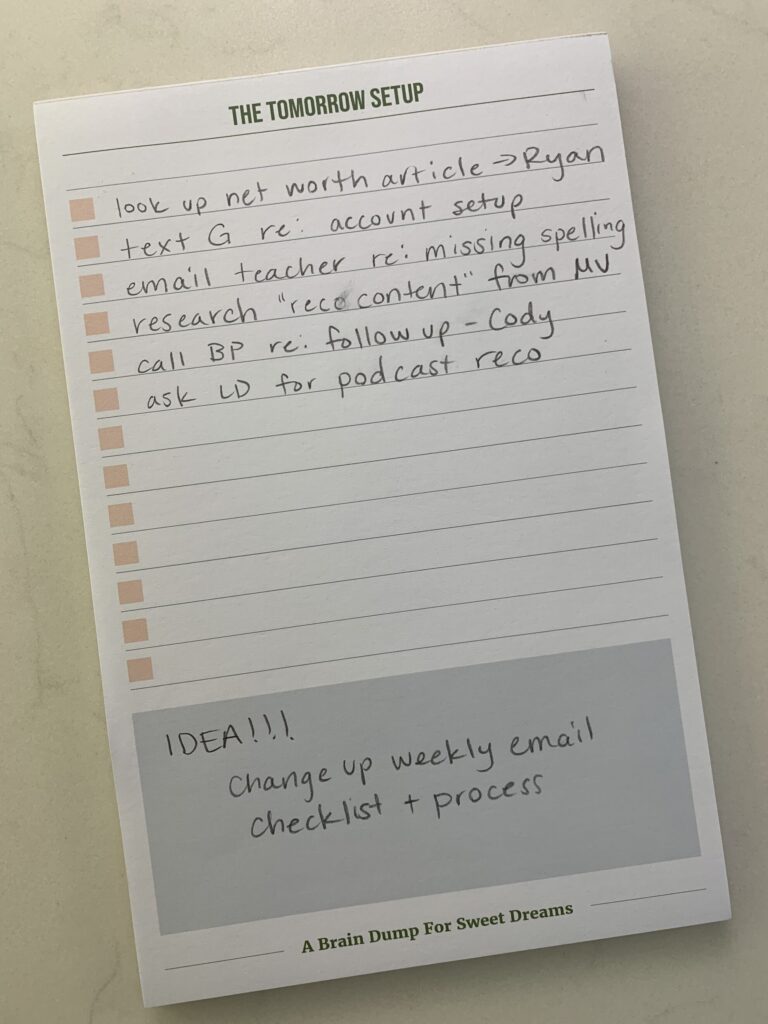 THE TOMORROW SETUP
look up net worth article → Ryan
text G re: account setup
email teacher re: missing spelling
research "reco content" from MV
call BP re: follow up - Cody
ask LD for podcast reco
IDEA!!!
Change up weekly email
checklist + process
A Brain Dump For Sweet Dreams